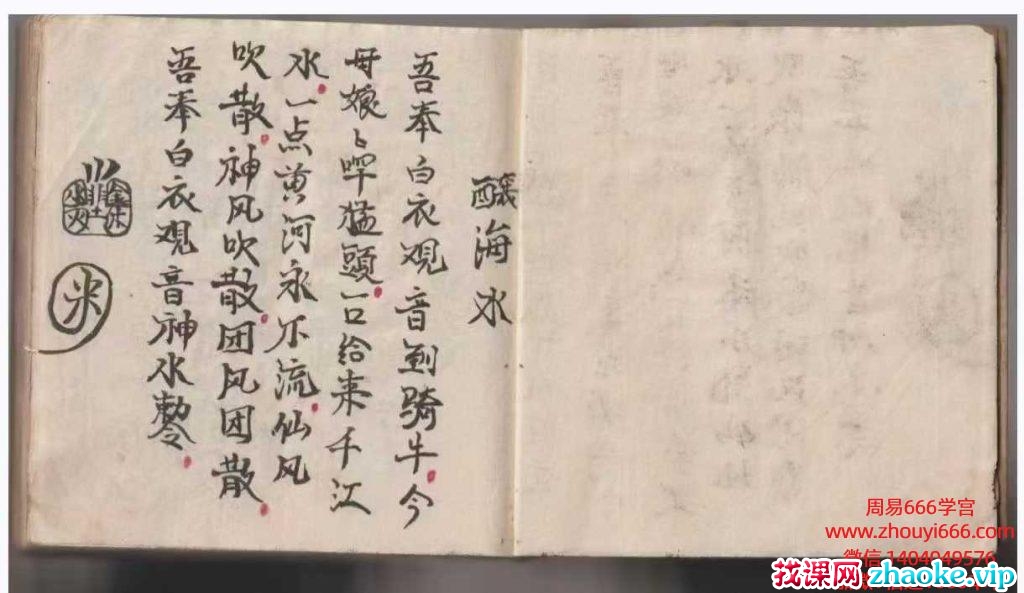 海水
吾奉白衣观音到骑牛今
母娘〻猛頭一口给来千江
水一点黄河永不流仙风
吹散神风吹散团风团散
吾奉白衣观音神水勅令
米
周易666学宫
www.zhouyi666.com
微信 1404949576
找课网zhaoke.vip